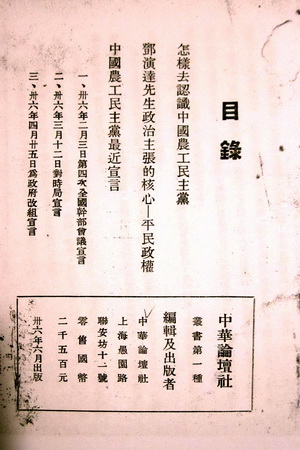 目錄
怎樣去認識中國農工民主黨
鄧演達先生政治主張的核心—平民政權
中國農工民主黨最近宣言
一、卅六年二月三日第四次全國幹部會議宣言
二、卅六年三月十二日對時局宣言
三、卅六年四月廿五日為政府改組宣言
中華論壇社
叢書第一種
編輯及出版者
中華論壇社
上海愚園路
聯安坊十二號
零售國幣
二千五百元
卅六年六月出版